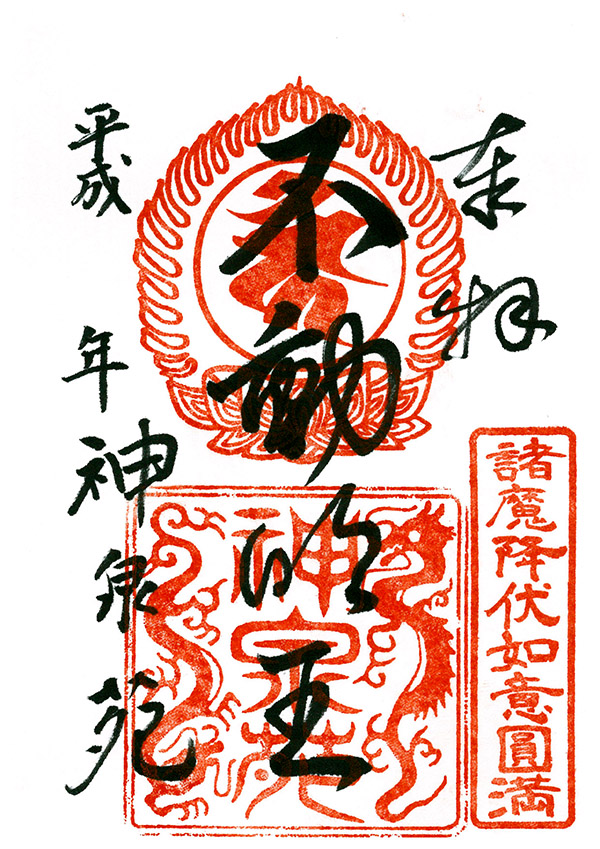 奉拝
諸魔降伏如意圓満
不動明王
神泉苑
平成　年
神泉苑